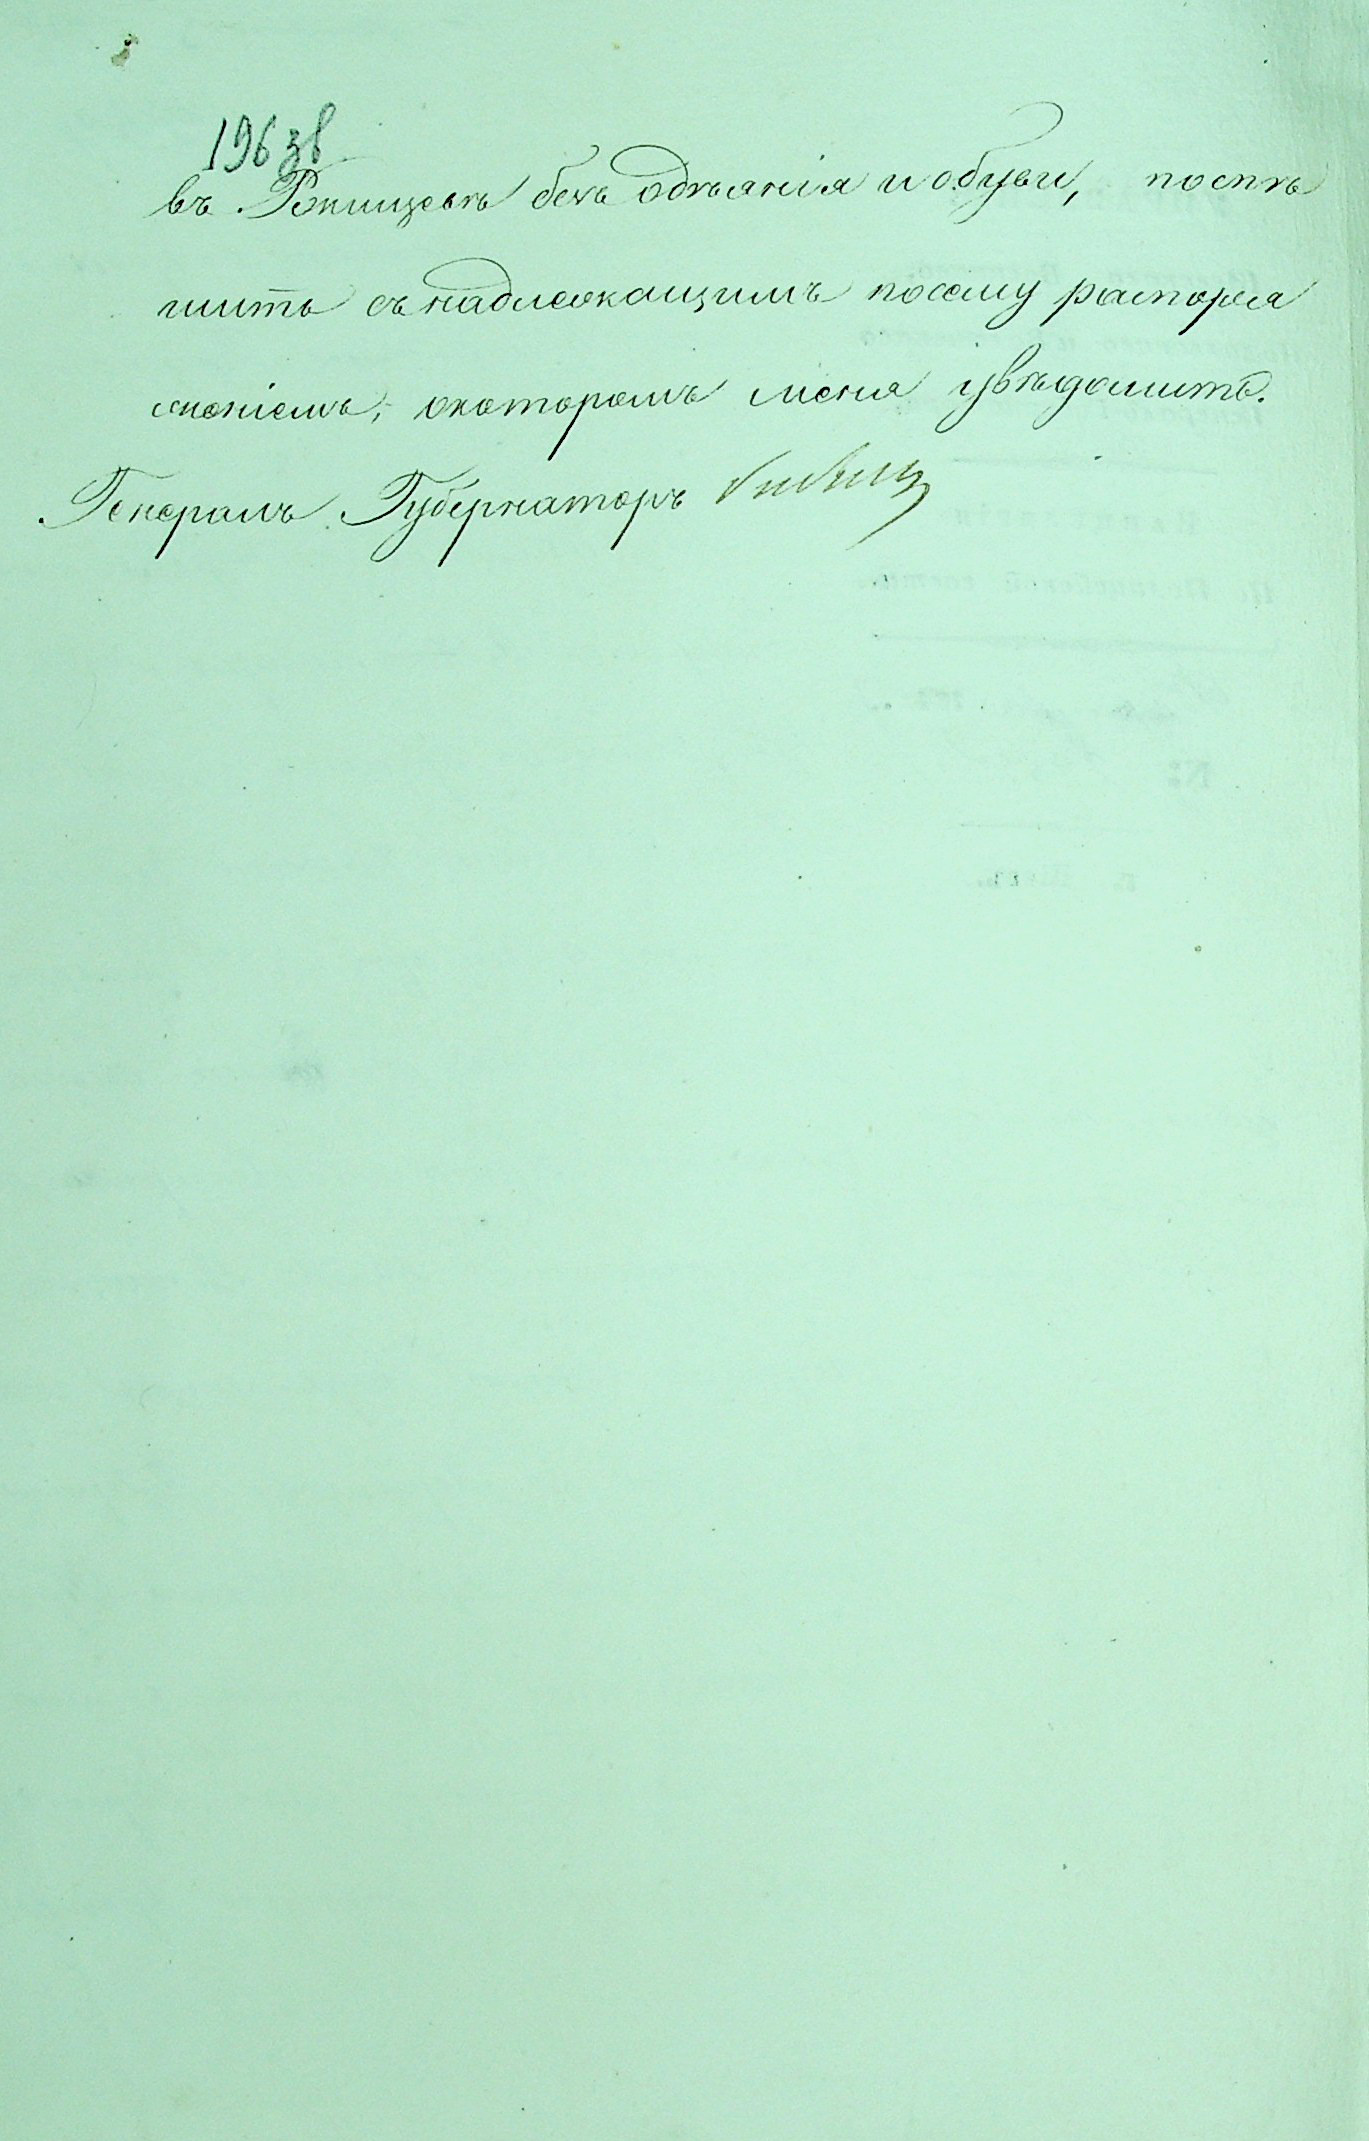 196 зв
въ Ракищевѣ безъ одѣянія и обуви, поспѣ
шить съ надлежащимъ по сему распоря
женіемъ, о которомъ меня увѣдомить.
Генералъ Губернаторъ Бибиковъ